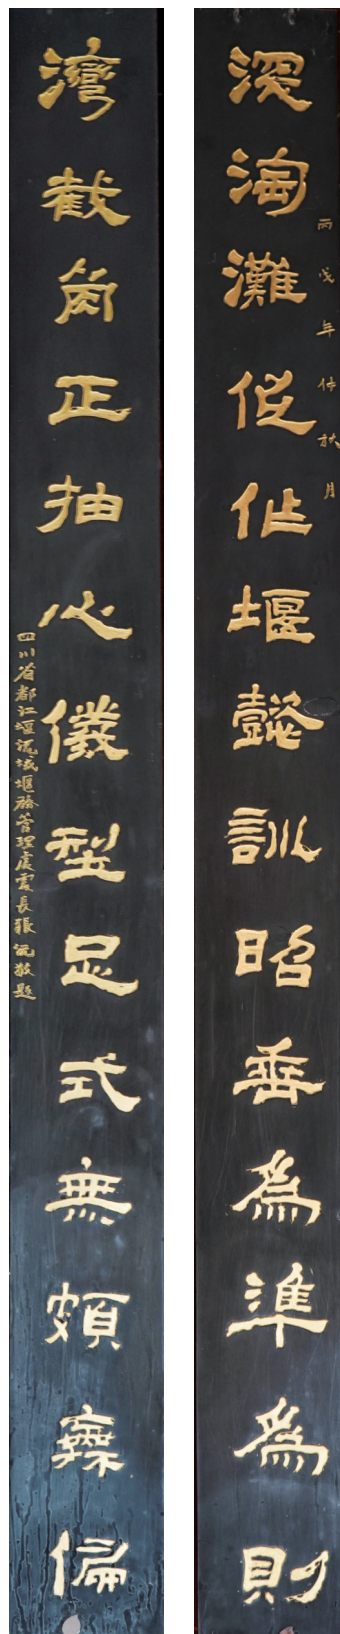 深淘灘低作堰懿訓昭垂為準為則
丙戌年仲秋月
灣截角正抽心儀型足式無頗無偏
四川省都江堰流域堰務管理處處長張沅敬題